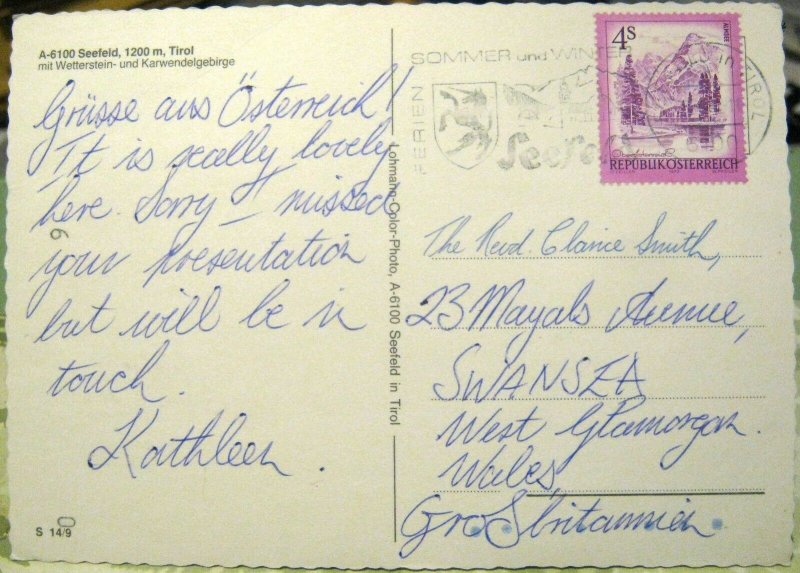 A-6100 Seefeld, 1200 m, Tirol
mit Wetterstein- und Karwendelgebirge
Grüsse aus Österreich!
It is really lovely
here. Sorry I missed
your presentation
but will be in
touch.
Kathleen.
S 14/9
6
Lohmann-Color-Photo, A-6100 Seefeld in Tirol
SOMMER und WINTER
FERIEN
Seefeld
TIROL
4S
REPUBLIK ÖSTERREICH
The Revd. Clarice Smith,
23 Mayals Avenue,
SWANSEA
West Glamorgan.
Wales,
Großbritannien